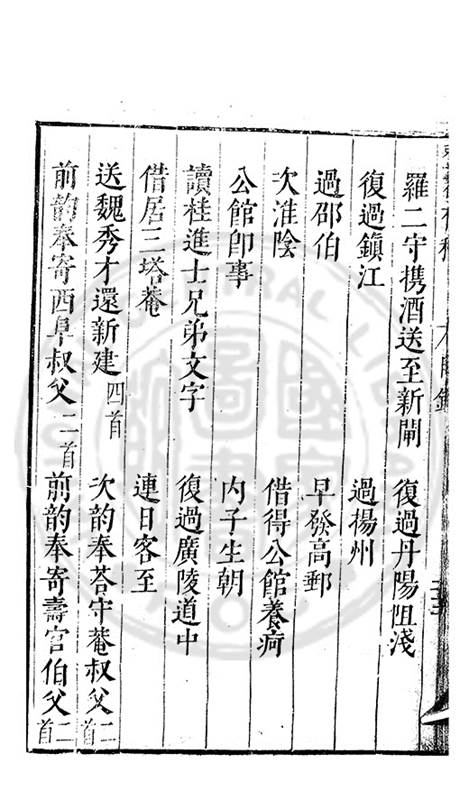 羅二守携酒送至新閘　復過丹陽阻淺
復過鎮江　過揚州
過邵伯　早發高郵
次淮陰　借得公館養疴
公館即事　內子生朝
讀桂進士兄弟文字　復過廣陵道中
借居三塔菴　連日客至
送魏秀才還新建四首　次韵奉荅守菴叔父二首
前韵奉寄西阜叔父二首　前韵奉寄壽官伯父二首